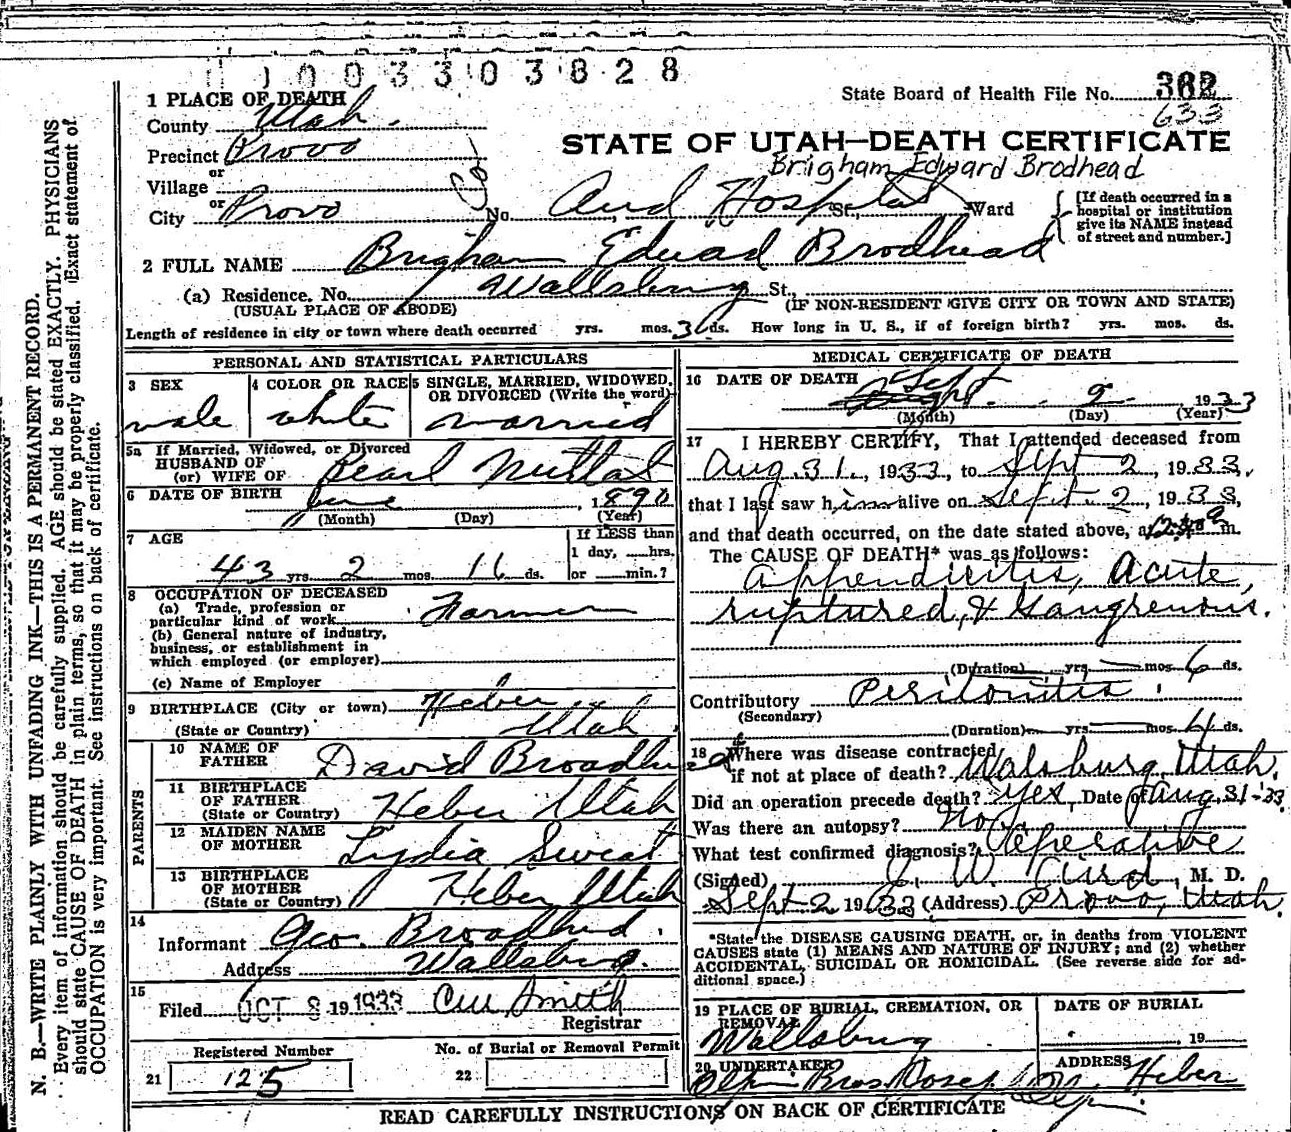 0003303828
State Board of Health File No. 362
633
1 PLACE OF DEATH
County Utah
STATE OF UTAH—DEATH CERTIFICATE
Precinct Provo
Brigham Edward Brodhead
or
Village
or
City Provo No. Aird Hospital St., Ward
[If death occurred in a
hospital or institution
give its NAME instead
of street and number.]
2 FULL NAME Brigham Edward Brodhead
(a) Residence. No. Wallsburg St.,
(USUAL PLACE OF ABODE) (IF NON-RESIDENT GIVE CITY OR TOWN AND STATE)
Length of residence in city or town where death occurred yrs. mos. ds. How long in U. S., if of foreign birth? yrs. mos. ds.
PERSONAL AND STATISTICAL PARTICULARS
3 SEX
male
4 COLOR OR RACE
white
5 SINGLE, MARRIED, WIDOWED,
OR DIVORCED (Write the word)
married
5a If Married, Widowed, or Divorced
HUSBAND OF
(or) WIFE OF Pearl Nuttal
6 DATE OF BIRTH June 1890
(Month) (Day) (Year)
7 AGE
43 yrs. 2 mos. 16 ds.
If LESS than
1 day, hrs.
or min.?
8 OCCUPATION OF DECEASED
(a) Trade, profession or
particular kind of work Farmer
(b) General nature of industry,
business, or establishment in
which employed (or employer)
(c) Name of Employer
9 BIRTHPLACE (City or town) Heber
(State or Country) Utah
PARENTS
10 NAME OF
FATHER David Broadhead
11 BIRTHPLACE
OF FATHER
(State or Country) Heber Utah
12 MAIDEN NAME
OF MOTHER Lydia Sweat
13 BIRTHPLACE
OF MOTHER
(State or Country) Heber Utah
14
Informant Geo. Broadhead.
Address Wallsburg.
15
Filed OCT 8 19 1933 Smith
Registrar
Registered Number
21 125
No. of Burial or Removal Permit
22
MEDICAL CERTIFICATE OF DEATH
16 DATE OF DEATH Sept. 2 1933
(Month) (Day) (Year)
17 I HEREBY CERTIFY, That I attended deceased from
Aug. 31, 1933, to Sept 2, 1933,
that I last saw him alive on Sept 2, 1933,
and that death occurred, on the date stated above, at m.
The CAUSE OF DEATH* was as follows:
Appendicitis, Acute,
ruptured, & Gangrenous.
(Duration) yrs. mos. 6 ds.
Contributory Peritonitis.
(Secondary)
(Duration) yrs. mos. 4 ds.
18 Where was disease contracted
if not at place of death? Walsburg, Utah.
Did an operation precede death? Yes, Date of Aug. 31-33.
Was there an autopsy? No.
What test confirmed diagnosis? Operative
(Signed) J. W. Aird, M. D.
Sept 2 1933 (Address) Provo, Utah.
*State the DISEASE CAUSING DEATH, or, in deaths from VIOLENT
CAUSES state (1) MEANS AND NATURE OF INJURY; and (2) whether
ACCIDENTAL, SUICIDAL OR HOMICIDAL. (See reverse side for ad-
ditional space.)
19 PLACE OF BURIAL, CREMATION, OR
REMOVAL
Wallsburg
DATE OF BURIAL
, 19
20 UNDERTAKER
Olpin Bros
ADDRESS
Heber
READ CAREFULLY INSTRUCTIONS ON BACK OF CERTIFICATE
N. B.—WRITE PLAINLY WITH UNFADING INK—THIS IS A PERMANENT RECORD.
Every item of information should be carefully supplied. AGE should be stated EXACTLY. PHYSICIANS
should state CAUSE OF DEATH in plain terms, so that it may be properly classified. Exact statement of
OCCUPATION is very important. See instructions on back of certificate.